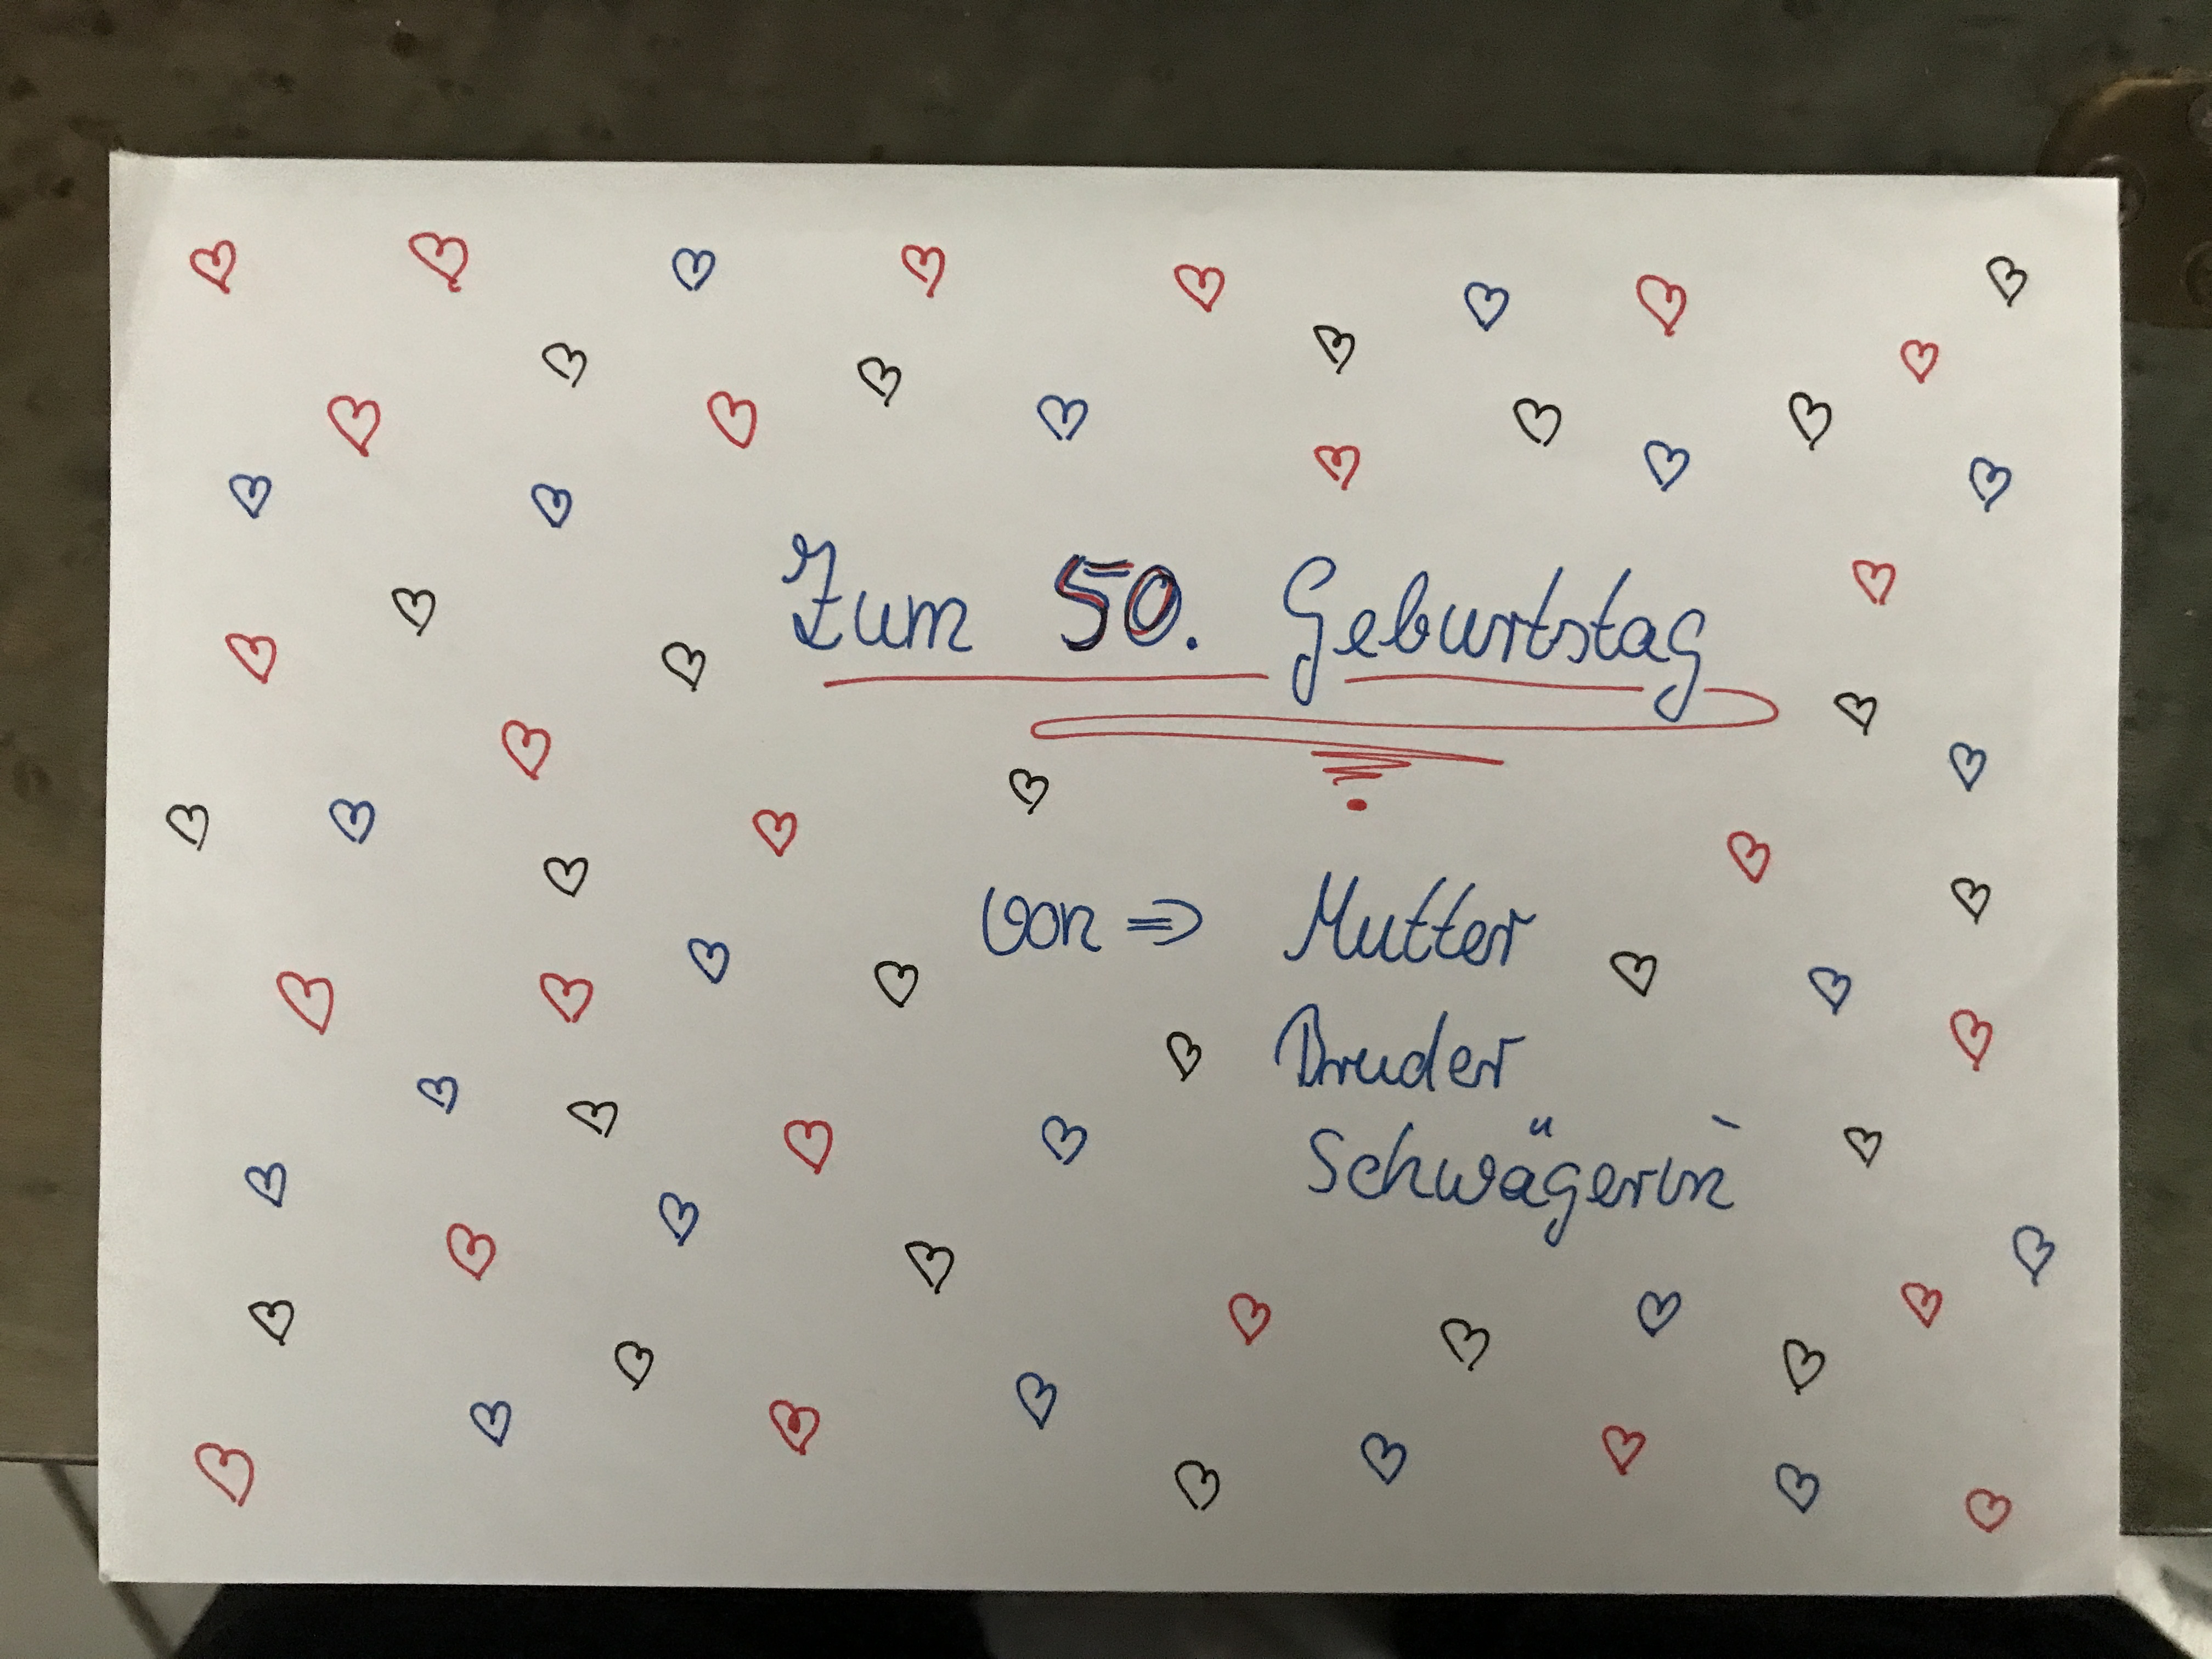 Zum 50. Geburtstag
von ⇒ Mutter
Bruder
Schwägerin